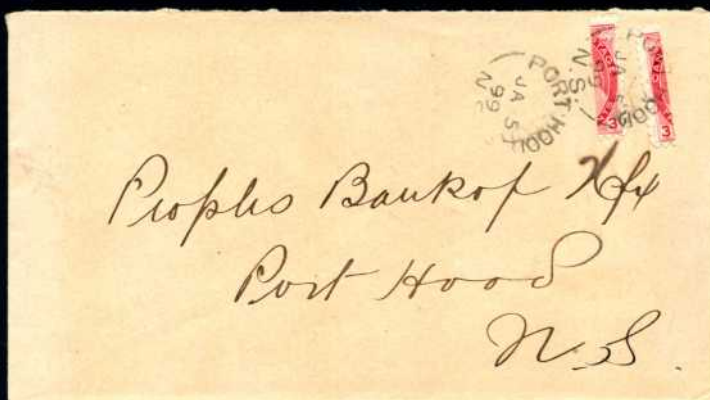 PORT HOOD
N.S.
JA 5
99
3
3
Peoples Bank of Hfx
Port Hood
N.S.